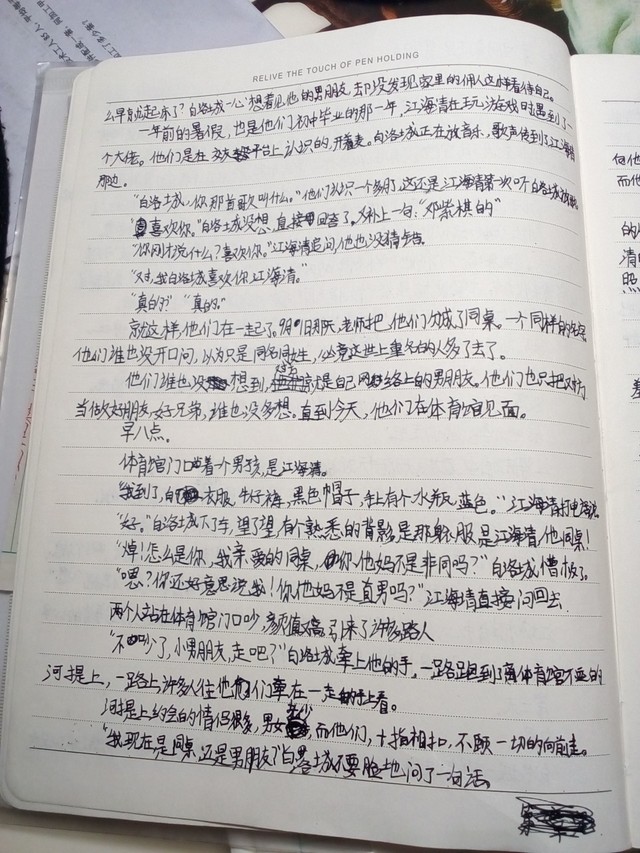 RELIVE THE TOUCH OF PEN HOLDING
么早就起床了?白洛城一心想着见他的男朋友,却没发现家里的佣人这样看待自己。
一年前的暑假,也是他们初中毕业的那一年,江海清在玩游戏时遇到了一
个大佬。他们是在交友平台上认识的,开着麦。白洛城正在放音乐,歌声传到了江海清
那边。
"白洛城,你那首歌叫什么。"他们认识一个多月了,这还是江海清第一次叫白洛城
"喜欢你。"白洛城没想,直接回答了。又补上一句:"邓紫棋的"
"你刚才说什么?喜欢你。"江海清追问,他也没稿
"对,我白洛城喜欢你江海清。"
"真的?" "真的。"
就这样,他们在一起了。9月1日那天,老师把他们分成了同桌。一个同样的
他们谁也没开口问,以为只是同名同姓,必竟这世上重名的人多了去了。
他们谁也没想到,同桌就是自己网络上的男朋友。他们也只把对方
当做好朋友,好兄弟,谁也没多想。直到今天,他们在体育馆见面。
早八点。
体育馆门口站着一个男孩,是江海清。
"我到了,白衣服,牛仔裤,黑色帽子,手上有个水瓶,蓝色。"江海清打电话说
"好。"白洛城下了车,望了望,有个熟悉的背影,是那身衣服是江海清,他同桌!
"焯!怎么是你,我亲爱的同桌,你他妈不是非同吗?"白洛城懵极了。
"嗯?你还好意思说我!你他妈不是直男吗?"江海清直接问回去.
两个人站在体育馆门口吵,颜值高,引来了许多路人
"不吵了,小男朋友,走吧?"白洛城牵上他的手,一路跑到了离体育馆不远的
河提上,一路上许多人往他们牵在一起的手上看。
河提上约会的情侣很多,男女,而他们,十指相扣,不顾一切的向前走。
"我现在是同桌还是男朋友?"白洛城不要脸地问了一句话。